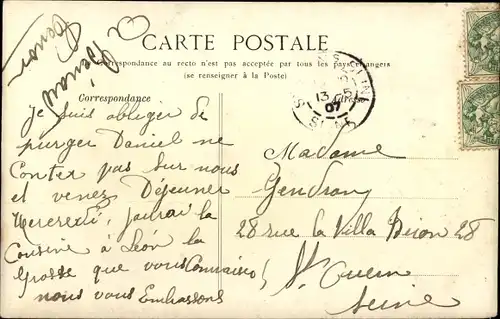 CARTE POSTALE
La Correspondance au recto n'est pas acceptée par tous les pays étrangers
(se renseigner à la Poste)
Correspondance
Adresse
13
07
Je suis obliger de
purger Daniel ne
Conter pas sur nous
et venez Déjeuner
Mercredi, jaurai la
Cousine à Léon la
Grosse que vous Connaisez !
nous vous Embrassons
Madame
Gendron
28 rue la Villa Biron 28
St Ouen
Seine